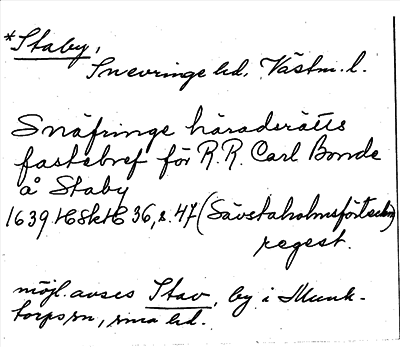 *Staby,
Snevringe hd. Västm. l.
Snäfringe häradsrätts
fastebref för R.R. Carl Bonde
å Staby
1639 36, s. 47 (Sävstaholmsförteckn)
regest.
möjl. avses Stav, by i Munk-
torps sn, sma hd.